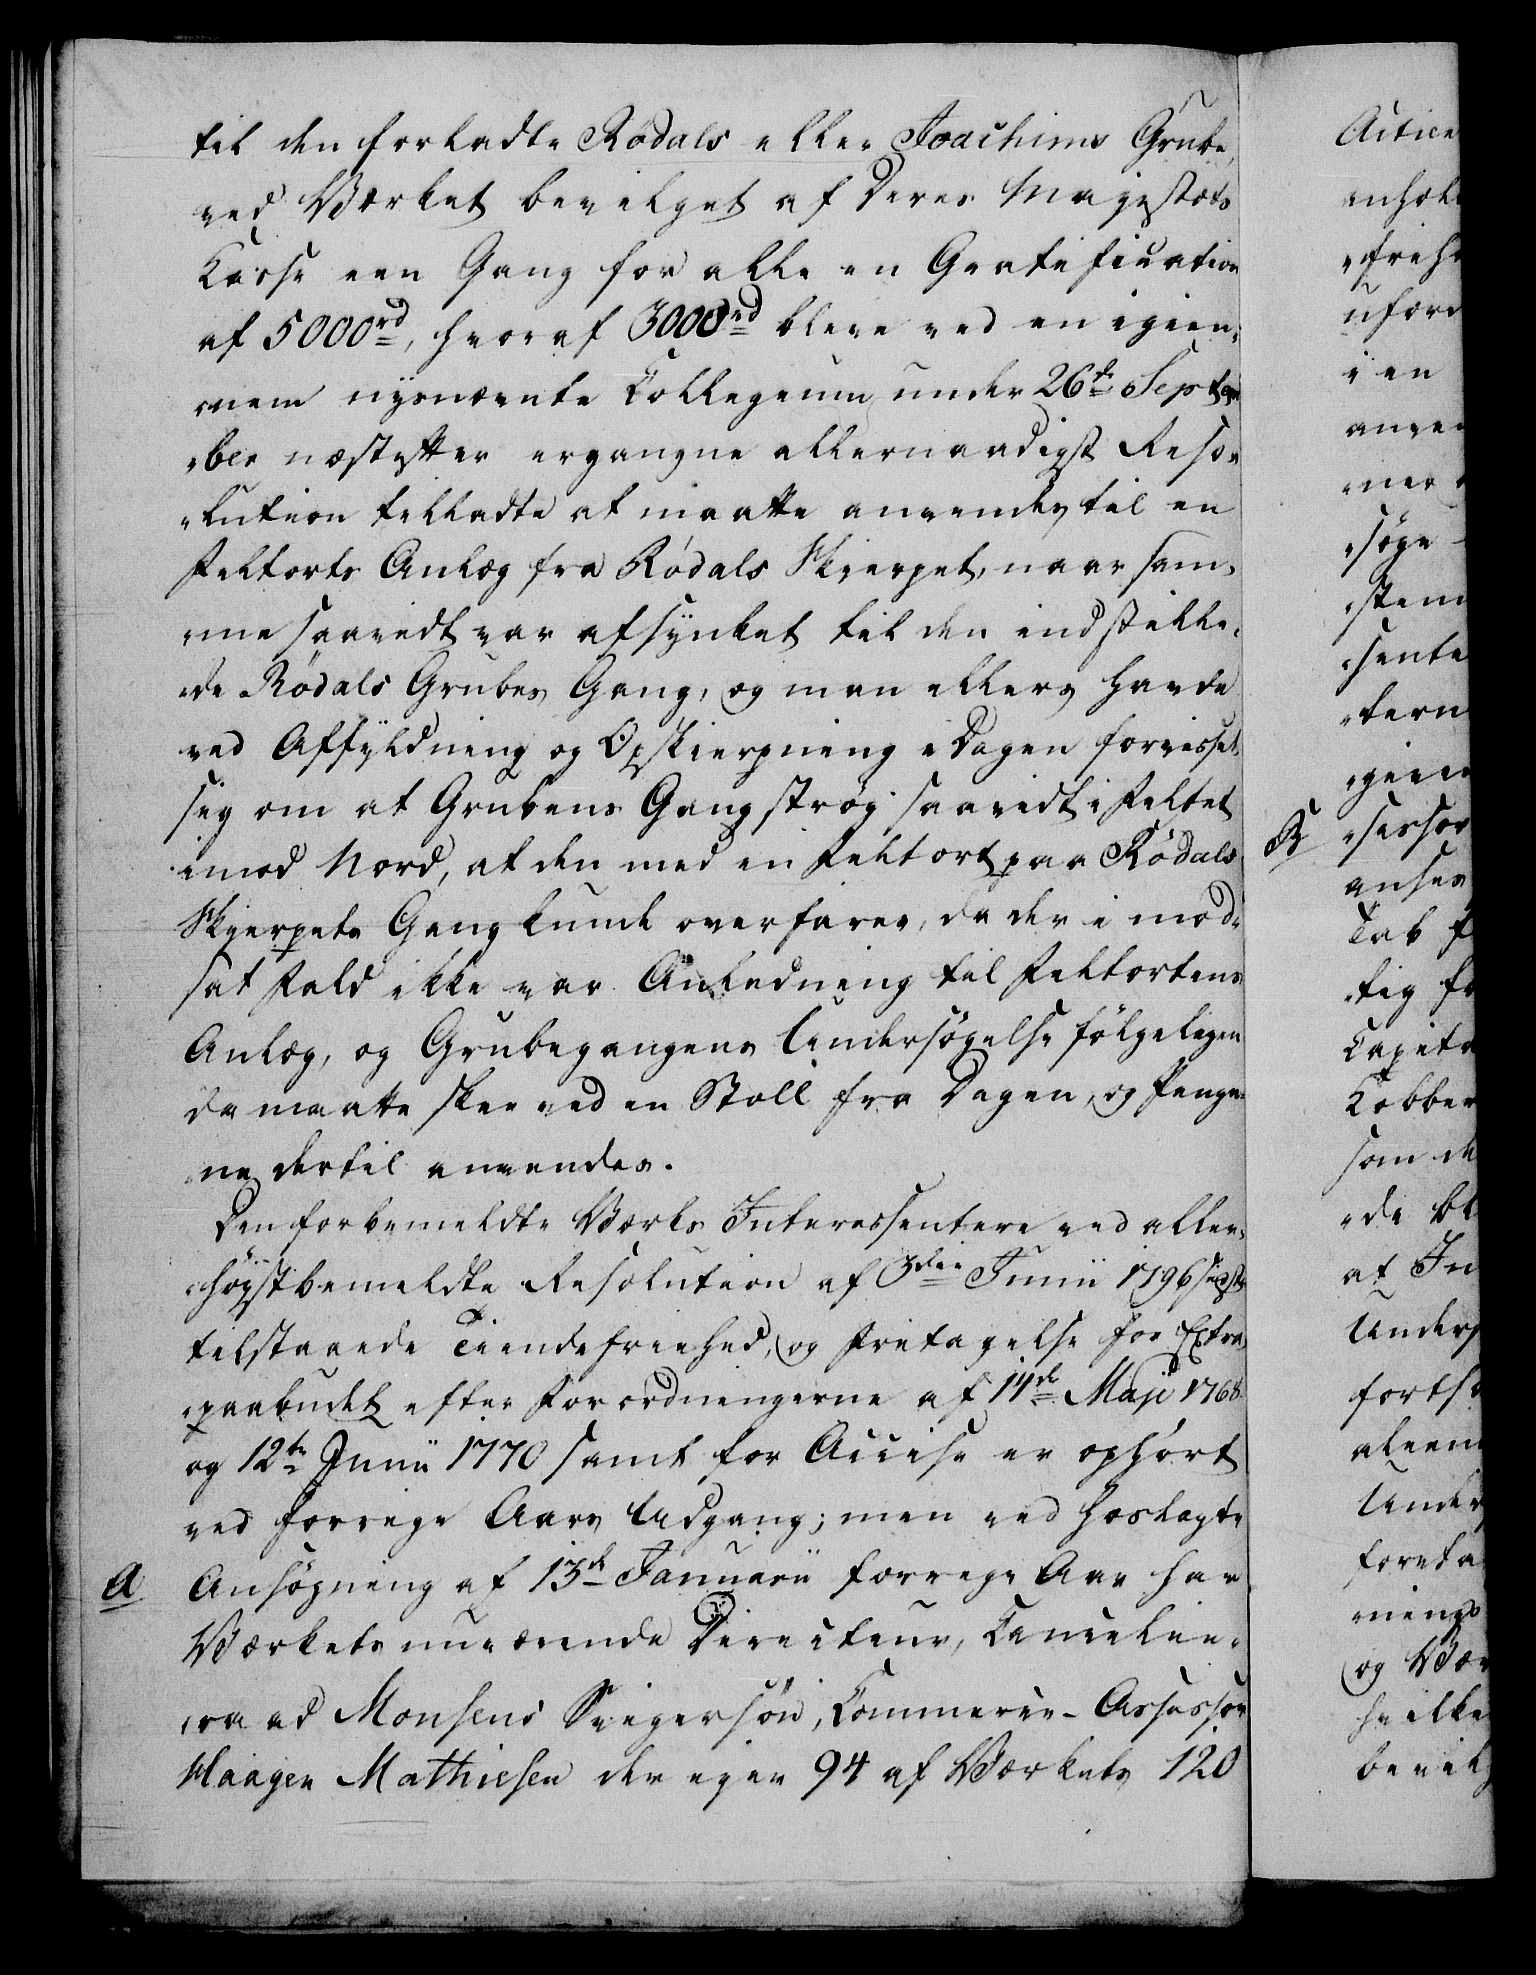 til den forladte Rödals eller Joachims Grube,
ved Værket bevilget af Deres Majestæts
Casse een Gang for alle en Gratification
af 5000rd, hvoraf 3000rd bleve ved en igien-
nem nysnævnte Collegium under 26de Septem
-ber næstefter ergangne allernaadigst Reso-
-lution tilladte at maatte anvendes til en
Feltorts Anlæg fra Rödals Skierpet, naar sam-
-me saavidt var afsynket til den indstille-
-de Rödals Grubes Gang, og man ellers havde
ved Affyldning og Opskierpning i Dagen forvisset
sig om at Grubens Gang strøg saavidt i Feltet
imod Nord, at den med en Feltort paa Rödals
Skierpets Gang kunde overfares, da der i mod-
sat Fald ikke var Anledning til Feltortens
Anlæg, og Grubegangens Undersögelse fölgeligen
da maatte skee ved en Stoll fra Dagen, og Penge-
-ne dertil anvendes.
Den forbemeldte Værks Interessentere ved aller-
-högstbemeldte Resolution af 3die Junii 1796 sidst
tilstaaede Tiendefriehed, og Fritagelse for Extra
-paabudet efter Forordningerne af 14de Maji 1768
og 12te Junii 1770 samt for Accise er ophört
ved forrige Aars Udgang; men ved hoslagte
A Ansögning af 13de Januarii forrige Aar har
Værkets nuværende Directeur, Cancelie-
-raad Monsens Svigersön, Commerce-Assessor
Haagen Mathiesen der eyer 94 af Værkets 120
Actier
B